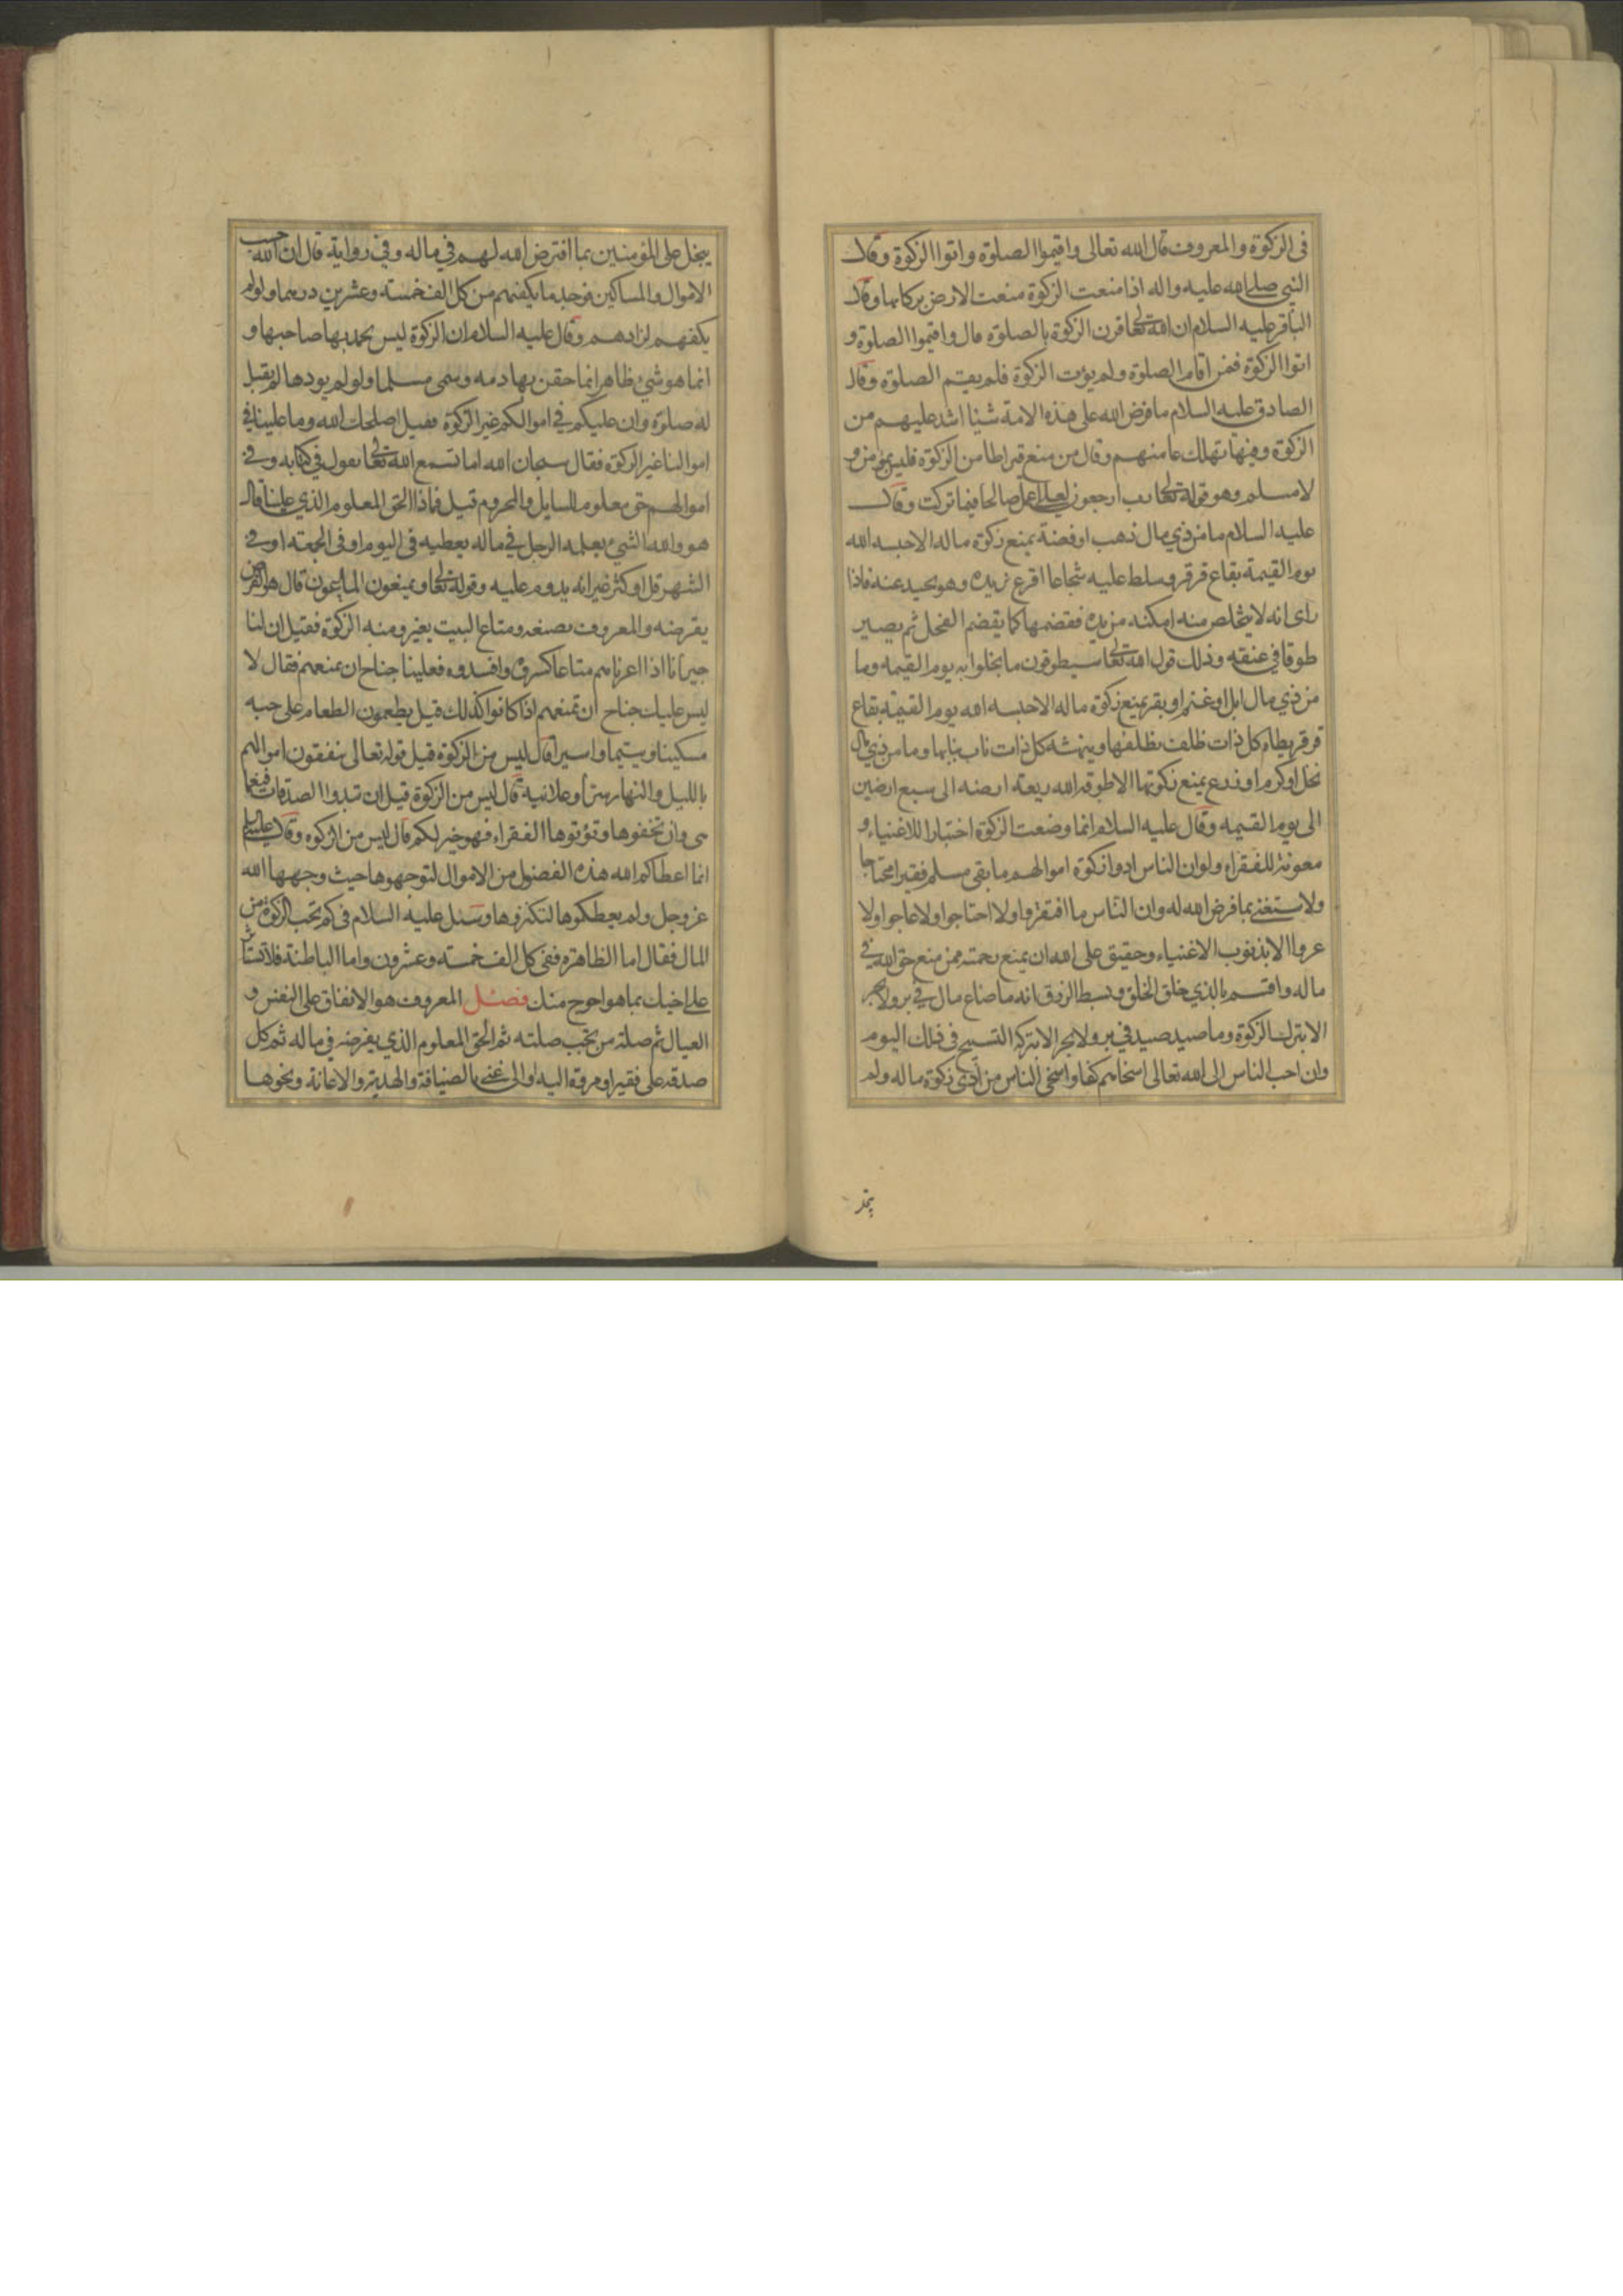 فى الزكوة والمعروف قال الله تعالى واقيموا الصلوة واتوا الزكوة وقال
النبي صلى الله عليه واله اذا منعت الزكوة منعت الارض بركاتها وقال
الباقر عليه السلام ان الله تعالى قرن الزكوة بالصلوة قال واقيموا الصلوة و
اتوا الزكوة فمن اقام الصلوة ولم يؤت الزكوة فلم يقم الصلوة وقال
الصادق عليه السلام ما فرض الله على هذه الامة شيئا اشد عليهم من
الزكوة وفيها تهلك عامتهم وقال من منع قيراطا من الزكوة فليس بمؤمن و
لا مسلم وهو قوله تعالى رب ارجعون لعلى اعمل صالحا فيما تركت وقال
عليه السلام ما من ذي مال ذهب او فضة يمنع زكوة ماله الا حبسه الله
يوم القيمة بقاع قرقر وسلط عليه شجاعا اقرع يريده وهو يحيد عنه فاذا
راى انه لا يتخلص منه امكنه من يده فقضمها كما يقضم الفحل ثم يصير
طوقا في عنقه وذلك قول الله تعالى سيطوقون ما بخلوا به يوم القيمه وما
من ذي مال ابل او غنم او بقر يمنع زكوة ماله الا حبسه الله يوم القيمة بقاع
قرقر يطاه كل ذات ظلف بظلفها وينهشه كل ذات ناب بنابها وما من ذي مال
نخل او كرم او زرع يمنع زكوتها الا طوقه الله ريعة ارضه الى سبع ارضين
الى يوم القيمه وقال عليه السلام انما وضعت الزكوة اختبارا للاغنياء و
معونة للفقراء ولو ان الناس ادوا زكوة اموالهم ما بقى مسلم فقيرا محتاجا
ولاستغنى بما فرض الله له وان الناس ما افتقروا ولا احتاجوا ولا جاعوا ولا
عروا الا بذنوب الاغنياء وحقيق على الله ان يمنع رحمته ممن منع حق الله في
ماله واقسم بالذي خلق الخلق وبسط الرزق انه ما ضاع مال في بر ولا بحر
الا بترك الزكوة وما صيد صيد في بر ولا بحر الا بتركه التسبيح فى ذلك اليوم
وان احب الناس الى الله تعالى اسخاهم كفا واسخى الناس من ادى زكوة ماله ولم
يبخل على المؤمنين بما افترض الله لهم في ماله وفي رواية قال ان الله حسب
الاموال والمساكين فوجد ما يكفيهم من كل الف خمسة وعشرين درهما ولو لم
يكفهم لزادهم وقال عليه السلام ان الزكوة ليس يحمد بها صاحبها و
انما هو شيء ظاهر انما حقن بها دمه وسمى مسلما ولو لم يودها لم يقبل
له صلوة وان عليكم في اموالكم غير الزكوة فقيل اصلحك الله وما علينا في
اموالنا غير الزكوة فقال سبحان الله اما تسمع الله تعالى يقول في كتابه وفي
اموالهم حق معلوم للسايل والمحروم قيل فماذا الحق المعلوم الذي علينا قال
هو والله الشيء يعلمه الرجل في ماله يعطيه في اليوم او في الجمعة او في
الشهر قل او كثر غير انه يدوم عليه وقوله تعالى ويمنعون الماعون قال هو القرض
يقرضه والمعروف يصنعه ومتاع البيت يعيره ومنه الزكوة فقيل ان لنا
جيرانا اذا اعرناهم متاعا كسروه وافسدوه فعلينا جناح ان نمنعهم فقال لا
ليس عليك جناح ان تمنعهم اذا كانوا كذلك قيل يطعمون الطعام على حبه
مسكينا ويتيما واسيرا قال ليس من الزكوة قيل قوله تعالى ينفقون اموالهم
بالليل والنهار سرا وعلانية قال ليس من الزكوة قيل ان تبدوا الصدقات فنعما
هى وان تخفوها وتؤتوها الفقراء فهو خير لكم قال ليس من الزكوه وقال عليه السلم
انما اعطاكم الله هذه الفضول من الاموال لتوجهوها حيث وجهها الله
عز وجل ولم يعطكوها لتكنزوها وسئل عليه السلام فى كم تجب الزكوة من
المال فقال اما الظاهرة ففى كل الف خمسة وعشرون واما الباطنة فلا تستاثر
على اخيك بما هو احوج منك فصل المعروف هو الانفاق على النفس و
العيال ثم صلة من تجب صلته ثم الحق المعلوم الذي يفرضه في ماله ثم كل
صدقة على فقير او مروة اليه او الى غنى بالضيافة والهدية والاعانة ونحوها